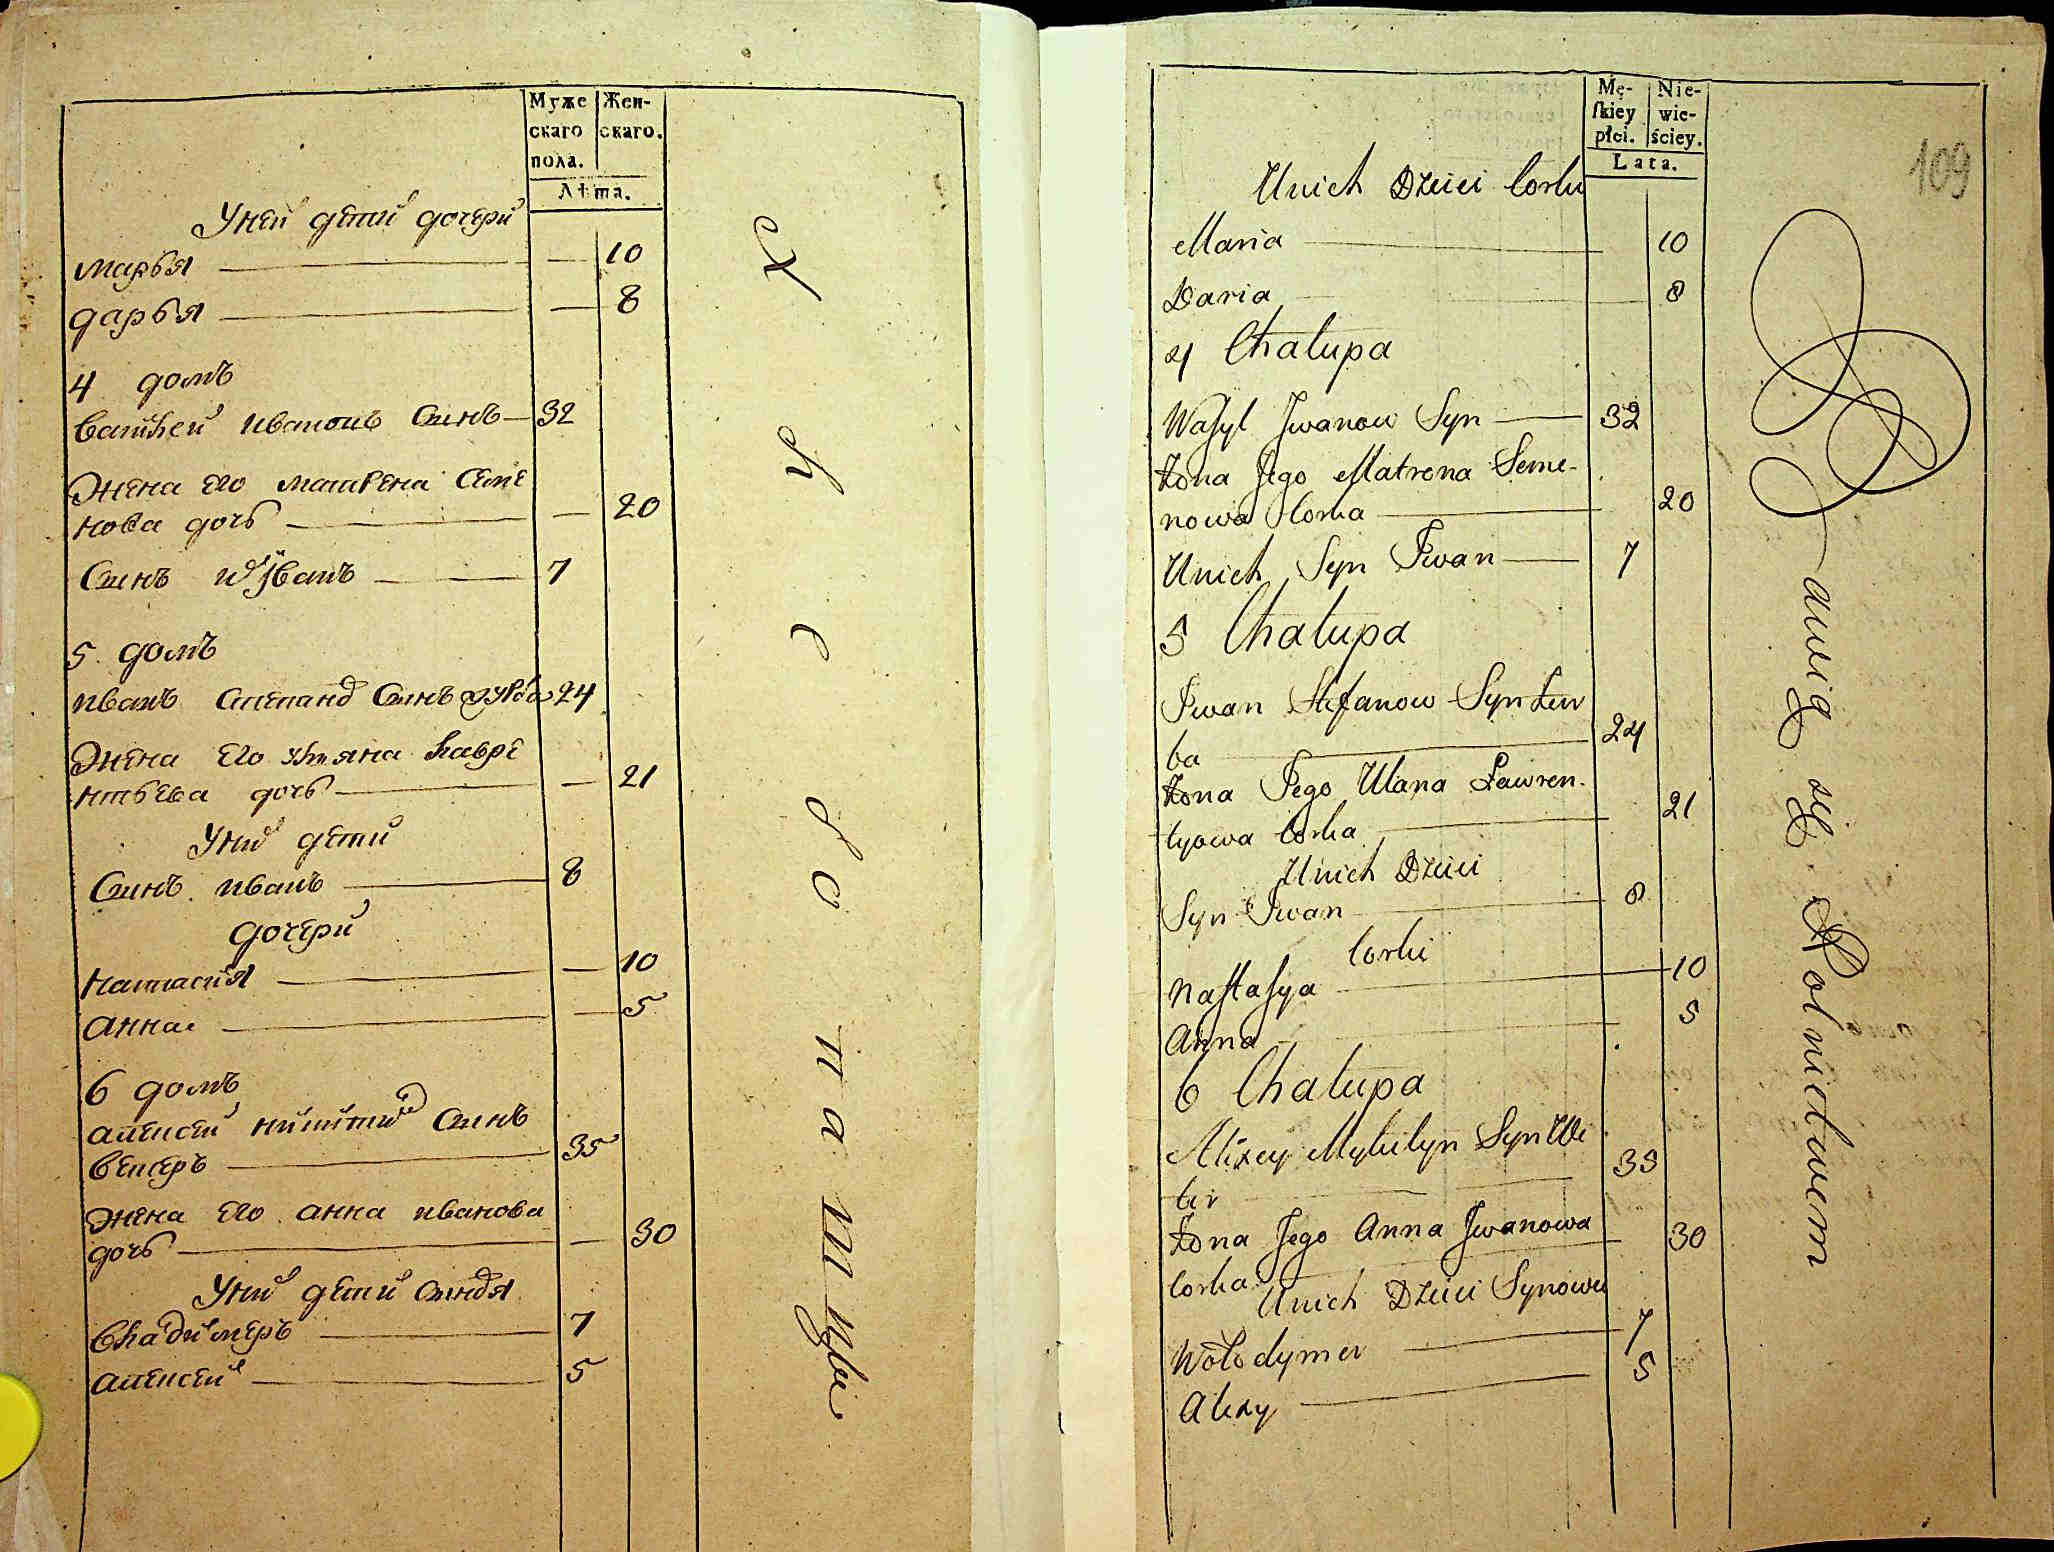 Муже
скаго
пола.
Жен-
скаго.
Лѣта.
Уней дети дочери
марья — 10
дарья — 8
4 домъ
василей ивановъ синъ — 32
жена его матрена семе
нова дочь — 20
Синъ иванъ — 7
5 домъ
иванъ степанд синъ 24
жена его уляна лавре
нтьева дочь — 21
Уних дети
Синъ иванъ — 8
дочери
настасия — 10
анна — 5
6 домъ
алексей никитин синъ
векеръ — 35
жена его анна иванова
дочь — 30
Уних дети синовя
владимеръ — 7
алексей — 5
хлебопашцы
Mę-
skiey
płci.
Nie-
wie-
ściey.
Lata.
109
Unich Dzieci Corki
Maria — 10
Daria — 8
4 Chalupa
Wasyl Jwanow Syn — 32
Zona Jego Matrona Seme-
nowa Corka — 20
Unich Syn Jwan — 7
5 Chalupa
Jwan Stefanow Syn Zur
ba — 24
Zona Jego Ulana Lawren-
tyowa Corka — 21
Unich Dzieci
Syn Jwan — 8
Corki
Nastasya — 10
Anna — 5
6 Chalupa
Alixey Mykityn Syn We
kir — 35
Zona Jego Anna Jwanowa
Corka — 30
Unich Dzieci Synowie
Wołodymer — 7
Alexy — 5
Bawią się Rolnictwem